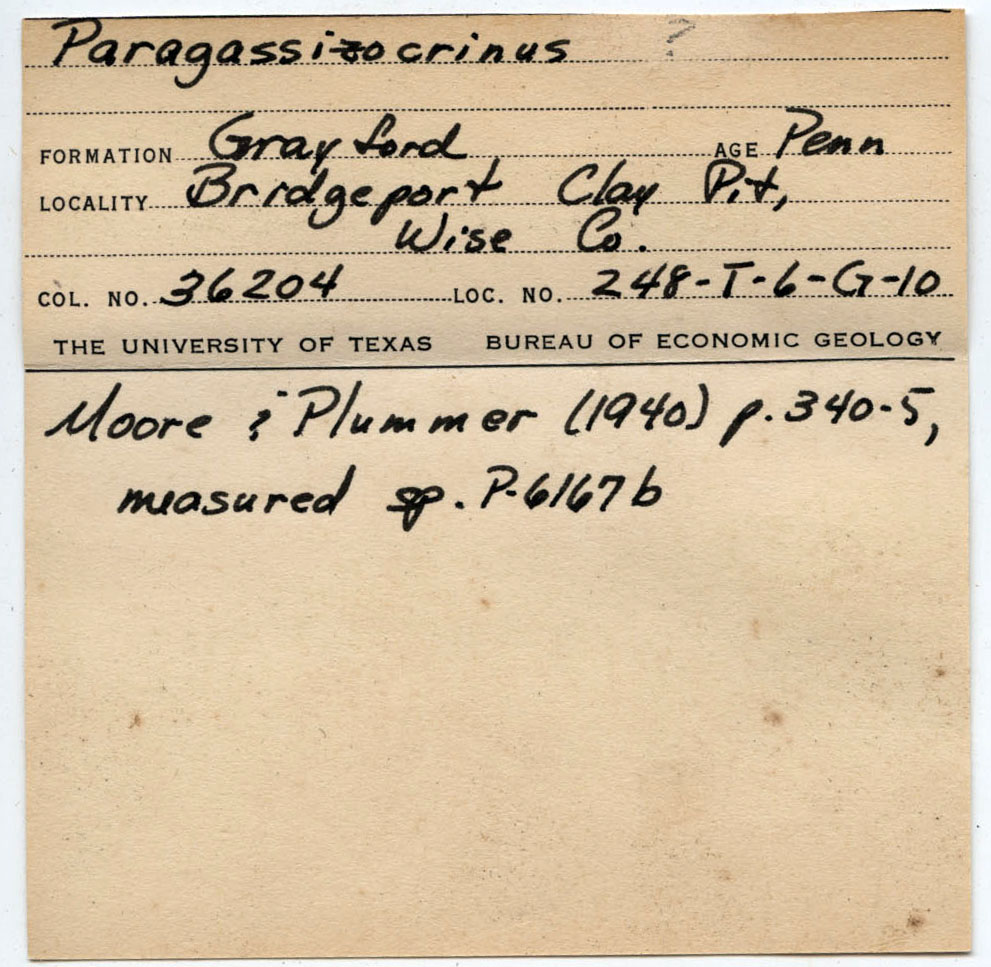 Paragassizocrinus ?
FORMATION Grayford AGE Penn
LOCALITY Bridgeport Clay Pit,
Wise Co.
COL. NO. 36204 LOC. NO. 248-T-6-G-10
THE UNIVERSITY OF TEXAS BUREAU OF ECONOMIC GEOLOGY
Moore & Plummer (1940) p. 340-5,
measured sp. P-6167b